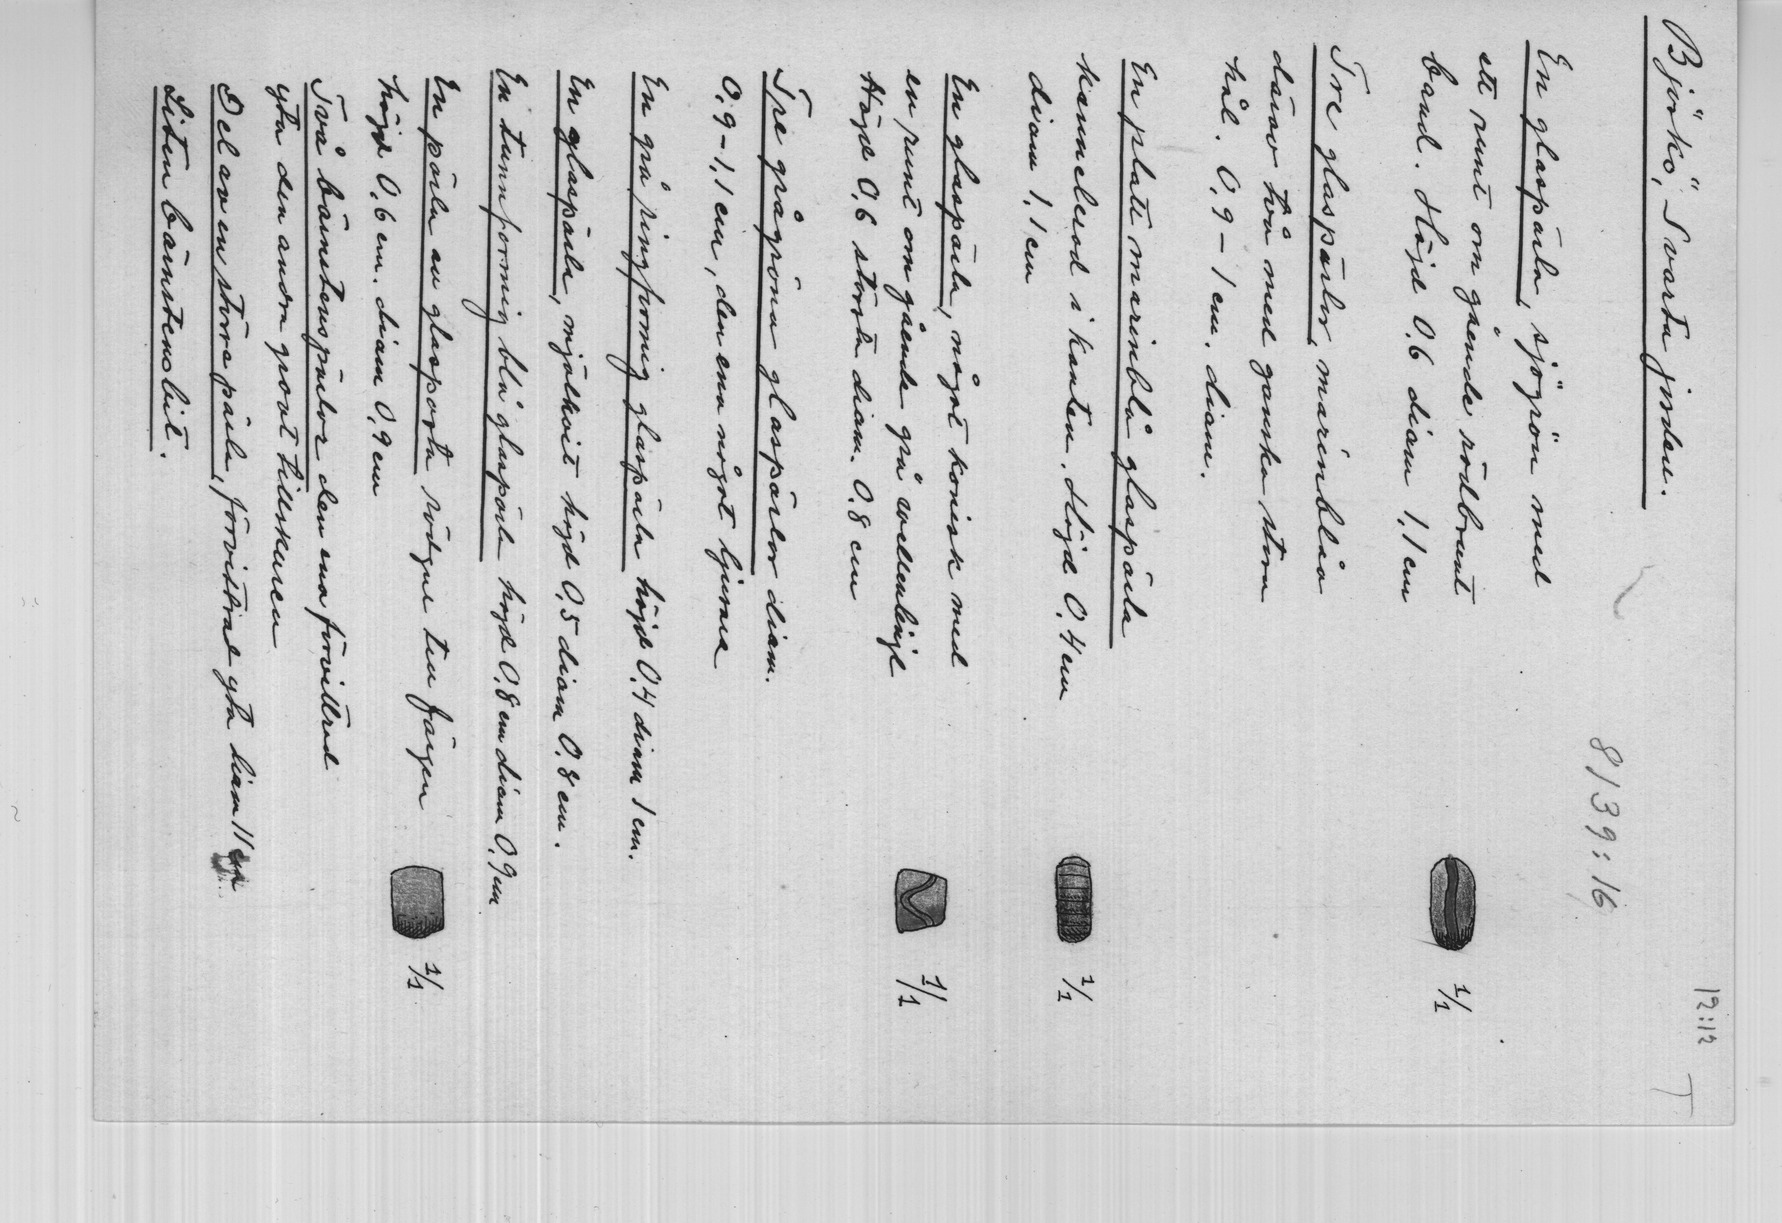 19:12
T
Björkö, Svarta jorden.
8139:16
En glaspärla, sjögrön med
ett runt om gående rödbrunt
band. Höjd 0.6 diam 1,1 cm
1/1
Tre glaspärlor, marinblåa
därav två med ganska stora
hål. 0,9-1 cm. diam.
En platt marinblå glaspärla
kannelerad i kanten. Höjd 0,4 cm
diam 1,1 cm
1/1
En glaspärla, något konisk med
en runt om gående grå
Höjd 0,6 största diam. 0,8 cm
1/1
Tre grågröna glaspärlor diam.
0,9-1,1 cm, den ena något ljusare
En grå ringformig glaspärla höjd 0,4 diam 1 cm.
En glaspärla, mjölkvit höjd 0,5 diam 0,8 cm.
En tunnformig blå glaspärla höjd 0,8 cm diam 0,9 cm
En pärla av glasporta rödgul till färgen
höjd 0,6 cm. diam 0,9 cm
1/1
Två bärnstenspärlor den ena förvittrad
yta den andra grovt tillskuren
Del av en större pärla, förvittrad yta diam 11
Liten bärnstensbit.